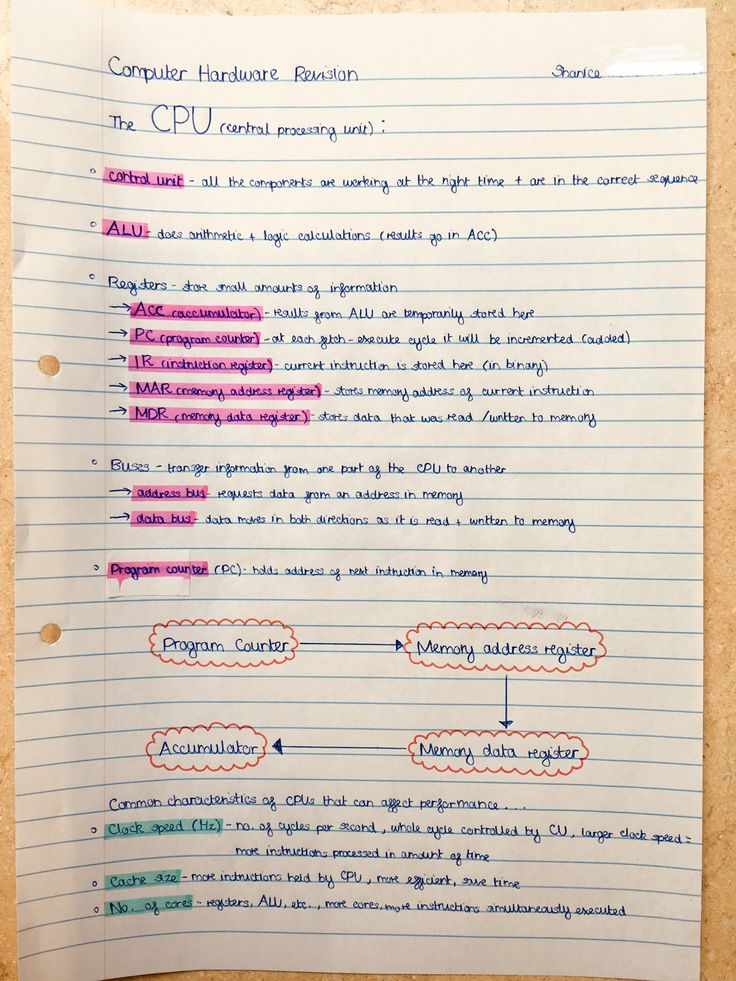 Computer Hardware Revision Shanice
The CPU (central processing unit) :
control unit - all the components are working at the right time + are in the correct sequence
ALU - does arithmetic + logic calculations (results go in ACC)
Registers - store small amounts of information
→ ACC (accumulator) - results from ALU are temporarily stored here
→ PC (program counter) - at each fetch-execute cycle it will be incremented (added)
→ IR (instruction register) - current instruction is stored here (in binary)
→ MAR (memory address register) - stores memory address of current instruction
→ MDR (memory data register) - stores data that was read / written to memory
Buses - transfer information from one part of the CPU to another
→ address bus - requests data from an address in memory
→ data bus - data moves in both directions as it is read + written to memory
Program counter (PC) - holds address of next instruction in memory
Program Counter → Memory address register
Accumulator ← Memory data register
Common characteristics of CPUs that can affect performance...
Clock speed (Hz) - no. of cycles per second, whole cycle controlled by CU, larger clock speed =
more instructions processed in amount of time
Cache size - more instructions held by CPU, more efficient, save time
No. of cores - registers, ALU, etc., more cores, more instructions simultaneously executed